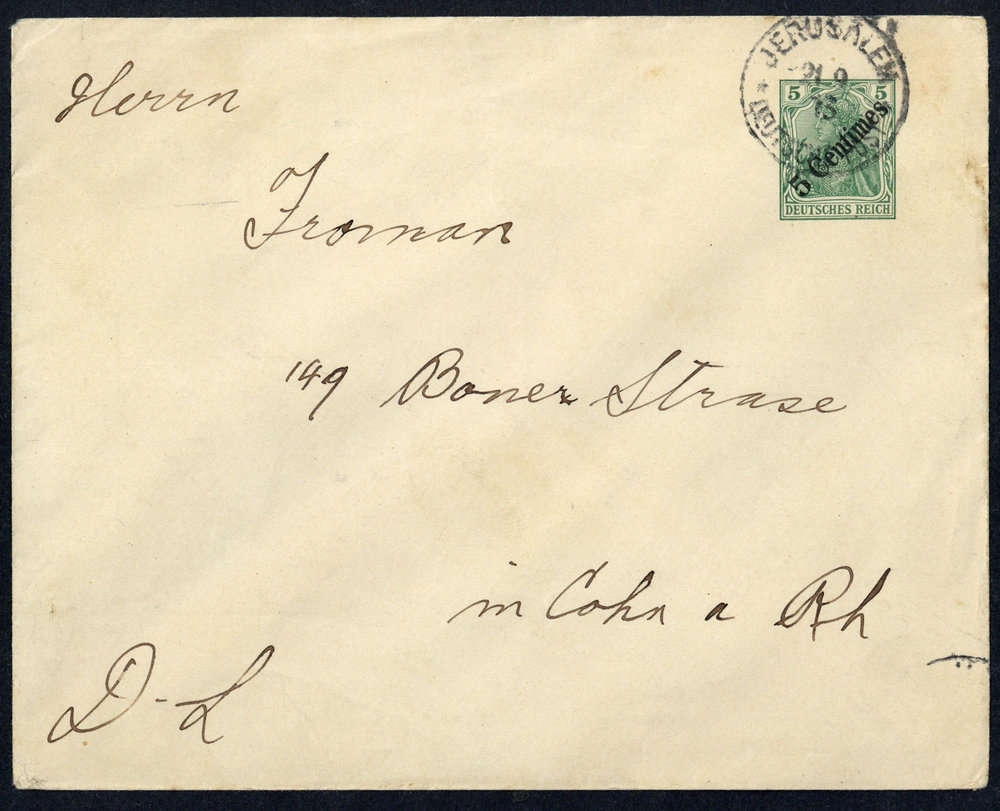 JERUSALEM
21 9
13
5 5
5 Centimes
DEUTSCHES REICH
Herrn
Froman
149 Boner Strase
in Cohn a Rh
D-L